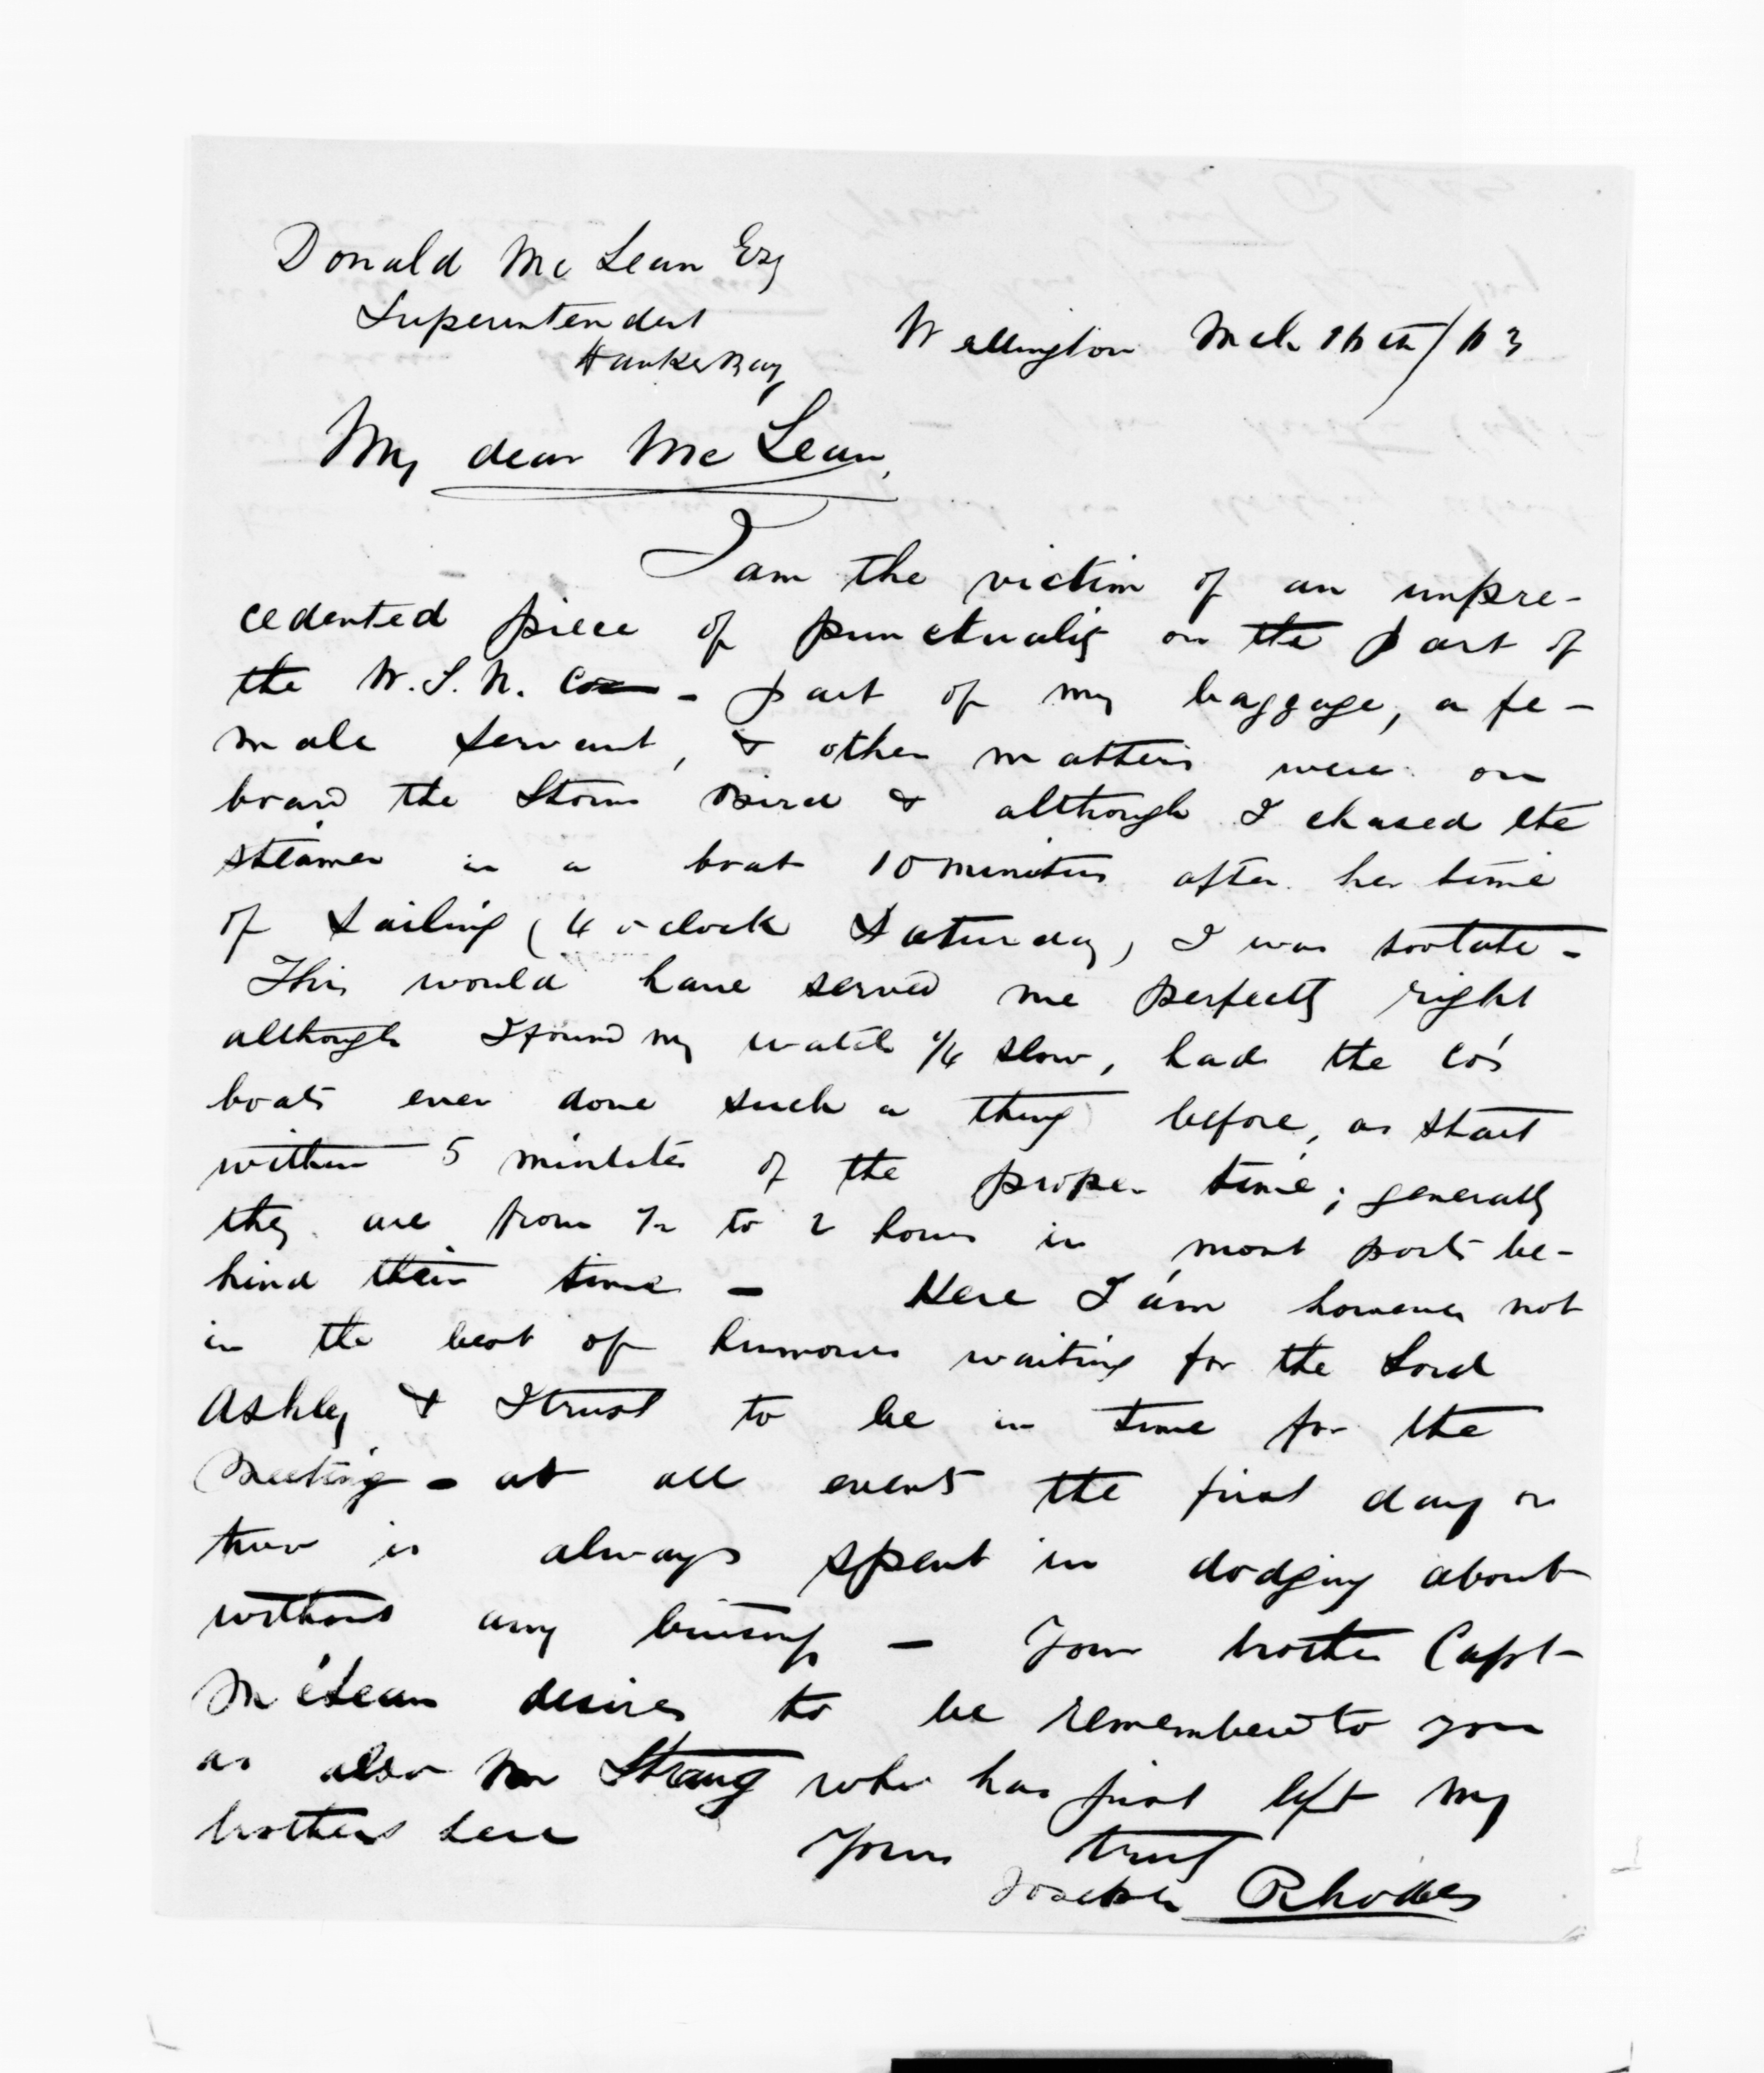 Donald McLean Esq
Superintendent
Hawkes Bay
Wellington Mch 16th/63
My dear McLean,
I am the victim of an unpre-
cedented piece of punctuality on the part of
the W.S.N. Co - part of my baggage, a fe-
male servant, & other matters were on
board the Storm Bird & although I chased the
steamer in a boat 10 minutes after her time
of sailing (4 o clock Saturday) I was too late -
This would have served me perfectly right
although I found my watch 1/4 slow, had the Co's
boats ever done such a thing before, as start
within 5 minutes of the proper time; generally
they are from 1/2 to 2 hours in most ports be-
hind their time - Here I am however not
in the best of humours waiting for the Lord
Ashley & I trust to be in time for the
meeting - at all events the first day or
two is always spent in dodging about
without any business - Your brother Capt-
McLean desires to be remembered to you
as also Mr Strang who has just left my
brothers here
Yours truly
Joseph Rhodes